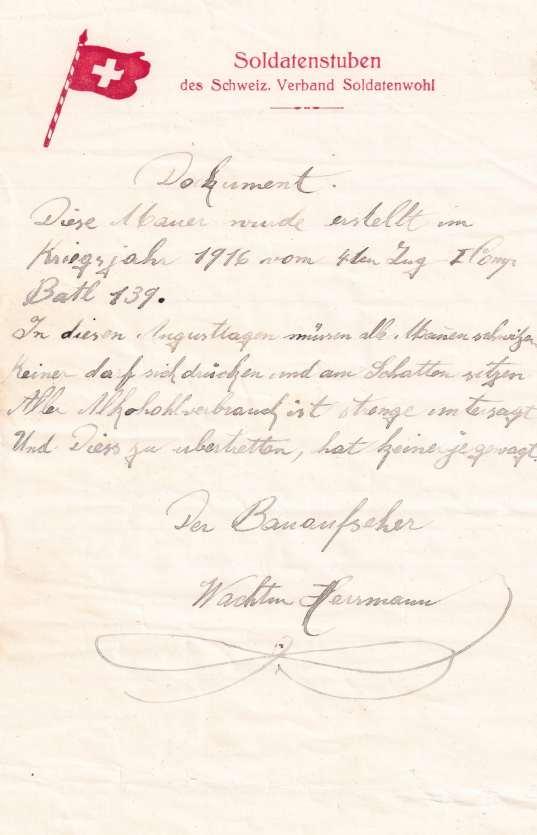 Soldatenstuben
des Schweiz. Verband Soldatenwohl
Dokument.
Diese Mauer wurde erstellt im
Kriegsjahr 1916 vom 4ten Zug I Comp
Batl 139.
In diesen Augusttagen müssen alle Mannen schwitzen
Keiner darf sich drücken und am Schatten sitzen
Aller Alkohohlverbrauch ist strenge untersagt
Und Diess zu ubertretten, hat keiner je gewagt.
Der Bauaufseher
Wachtm Herrmann